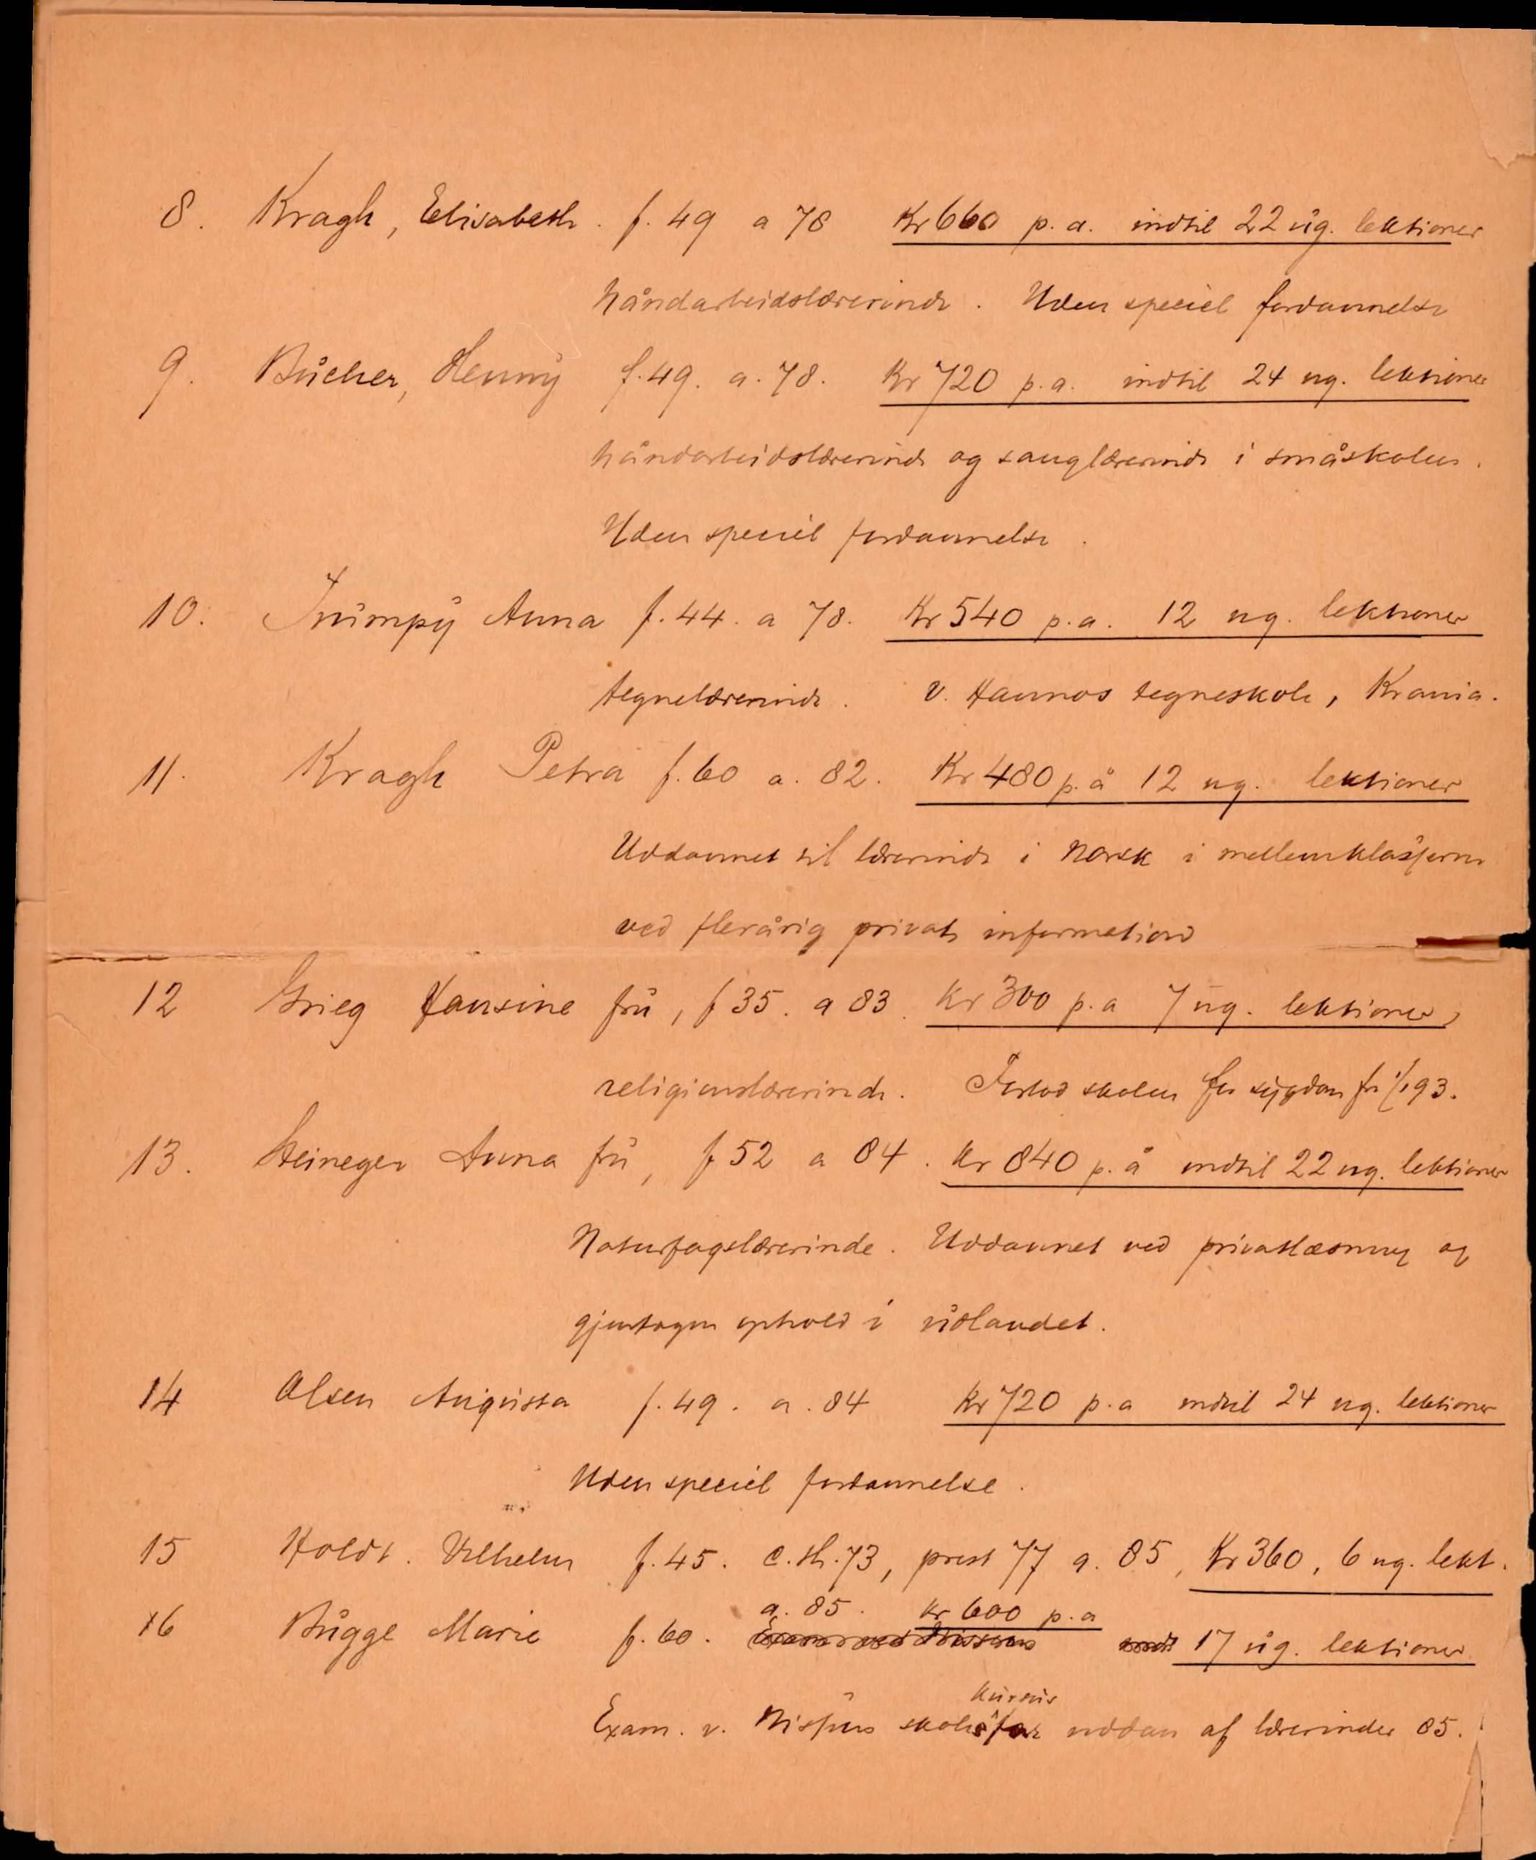 8. Kragh, Elisabeth. f. 49 a 78 Kr 660 p. a. indtil 22 ug. lektioner
håndarbeidslærerinde. Uden speciel fordannelse
9. Bucher, Henny f. 49. a. 78. Kr 720 p. a. indtil 24 ug. lektioner
håndarbeidslærerinde og sanglærerinde i småskolen.
Uden speciel fordannelse.
10. Trumpy Anna f. 44. a 78. Kr 540 p. a. 12 ug. lektioner
tegnelærerinde. v. Hannos tegneskole, Krania.
11. Kragh Petra f. 60 a. 82. Kr 480 p. å 12 ug. lektioner
Uddannet til lærerinde i norsk i mellemklasserne
ved flerårig privat information
12 Grieg Hansine fru, f 35. a 83. Kr 300 p. a 7 ug. lektioner,
religionslærerinde. Forlod skolen for sygdom 93.
13. Heineger Anna fru, f 52 a 84. Kr 840 p. å indtil 22 ug. lektioner
Naturfagslærerinde. Uddannet ved privatlæsning og
gjentagen ophold i udlandet.
14 Olsen Augusta f. 49. a. 84 Kr 720 p. a indtil 24 ug. lektioner
Uden speciel fordannelse.
15 Holdt. Vilhelm f. 45. c. th. 73, prest 77 a. 85, Kr 360, 6 ug. lekt.
a. 85. kr 600 p. a
16 Bugge Marie f. 60. 17 ug. lektioner
kursus
Exam. v. Nissens skoles for uddan af lærerinder 85.